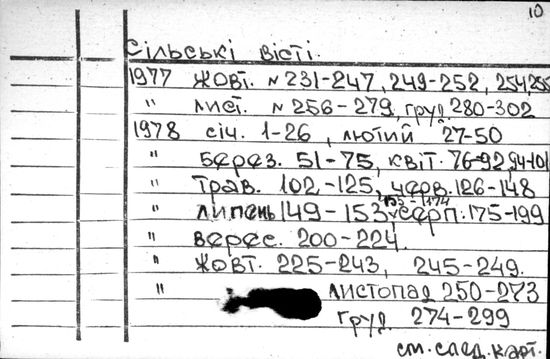 10
Сільські вісті.
1977 жовт. N 231-247, 249-252, 254,255
" лист. N 256-279, груд 280-302
1978 січ. 1-26, лютий 27-50
" берез. 51-75, квіт. 76-92, 94-101
" трав. 102-125, черв. 126-148
" липень 149-153, 155-174 серп. 175-199
" верес. 200-224.
" жовт. 225-243, 245-249.
" листопад 250-273
груд 274-299
см. след. карт.